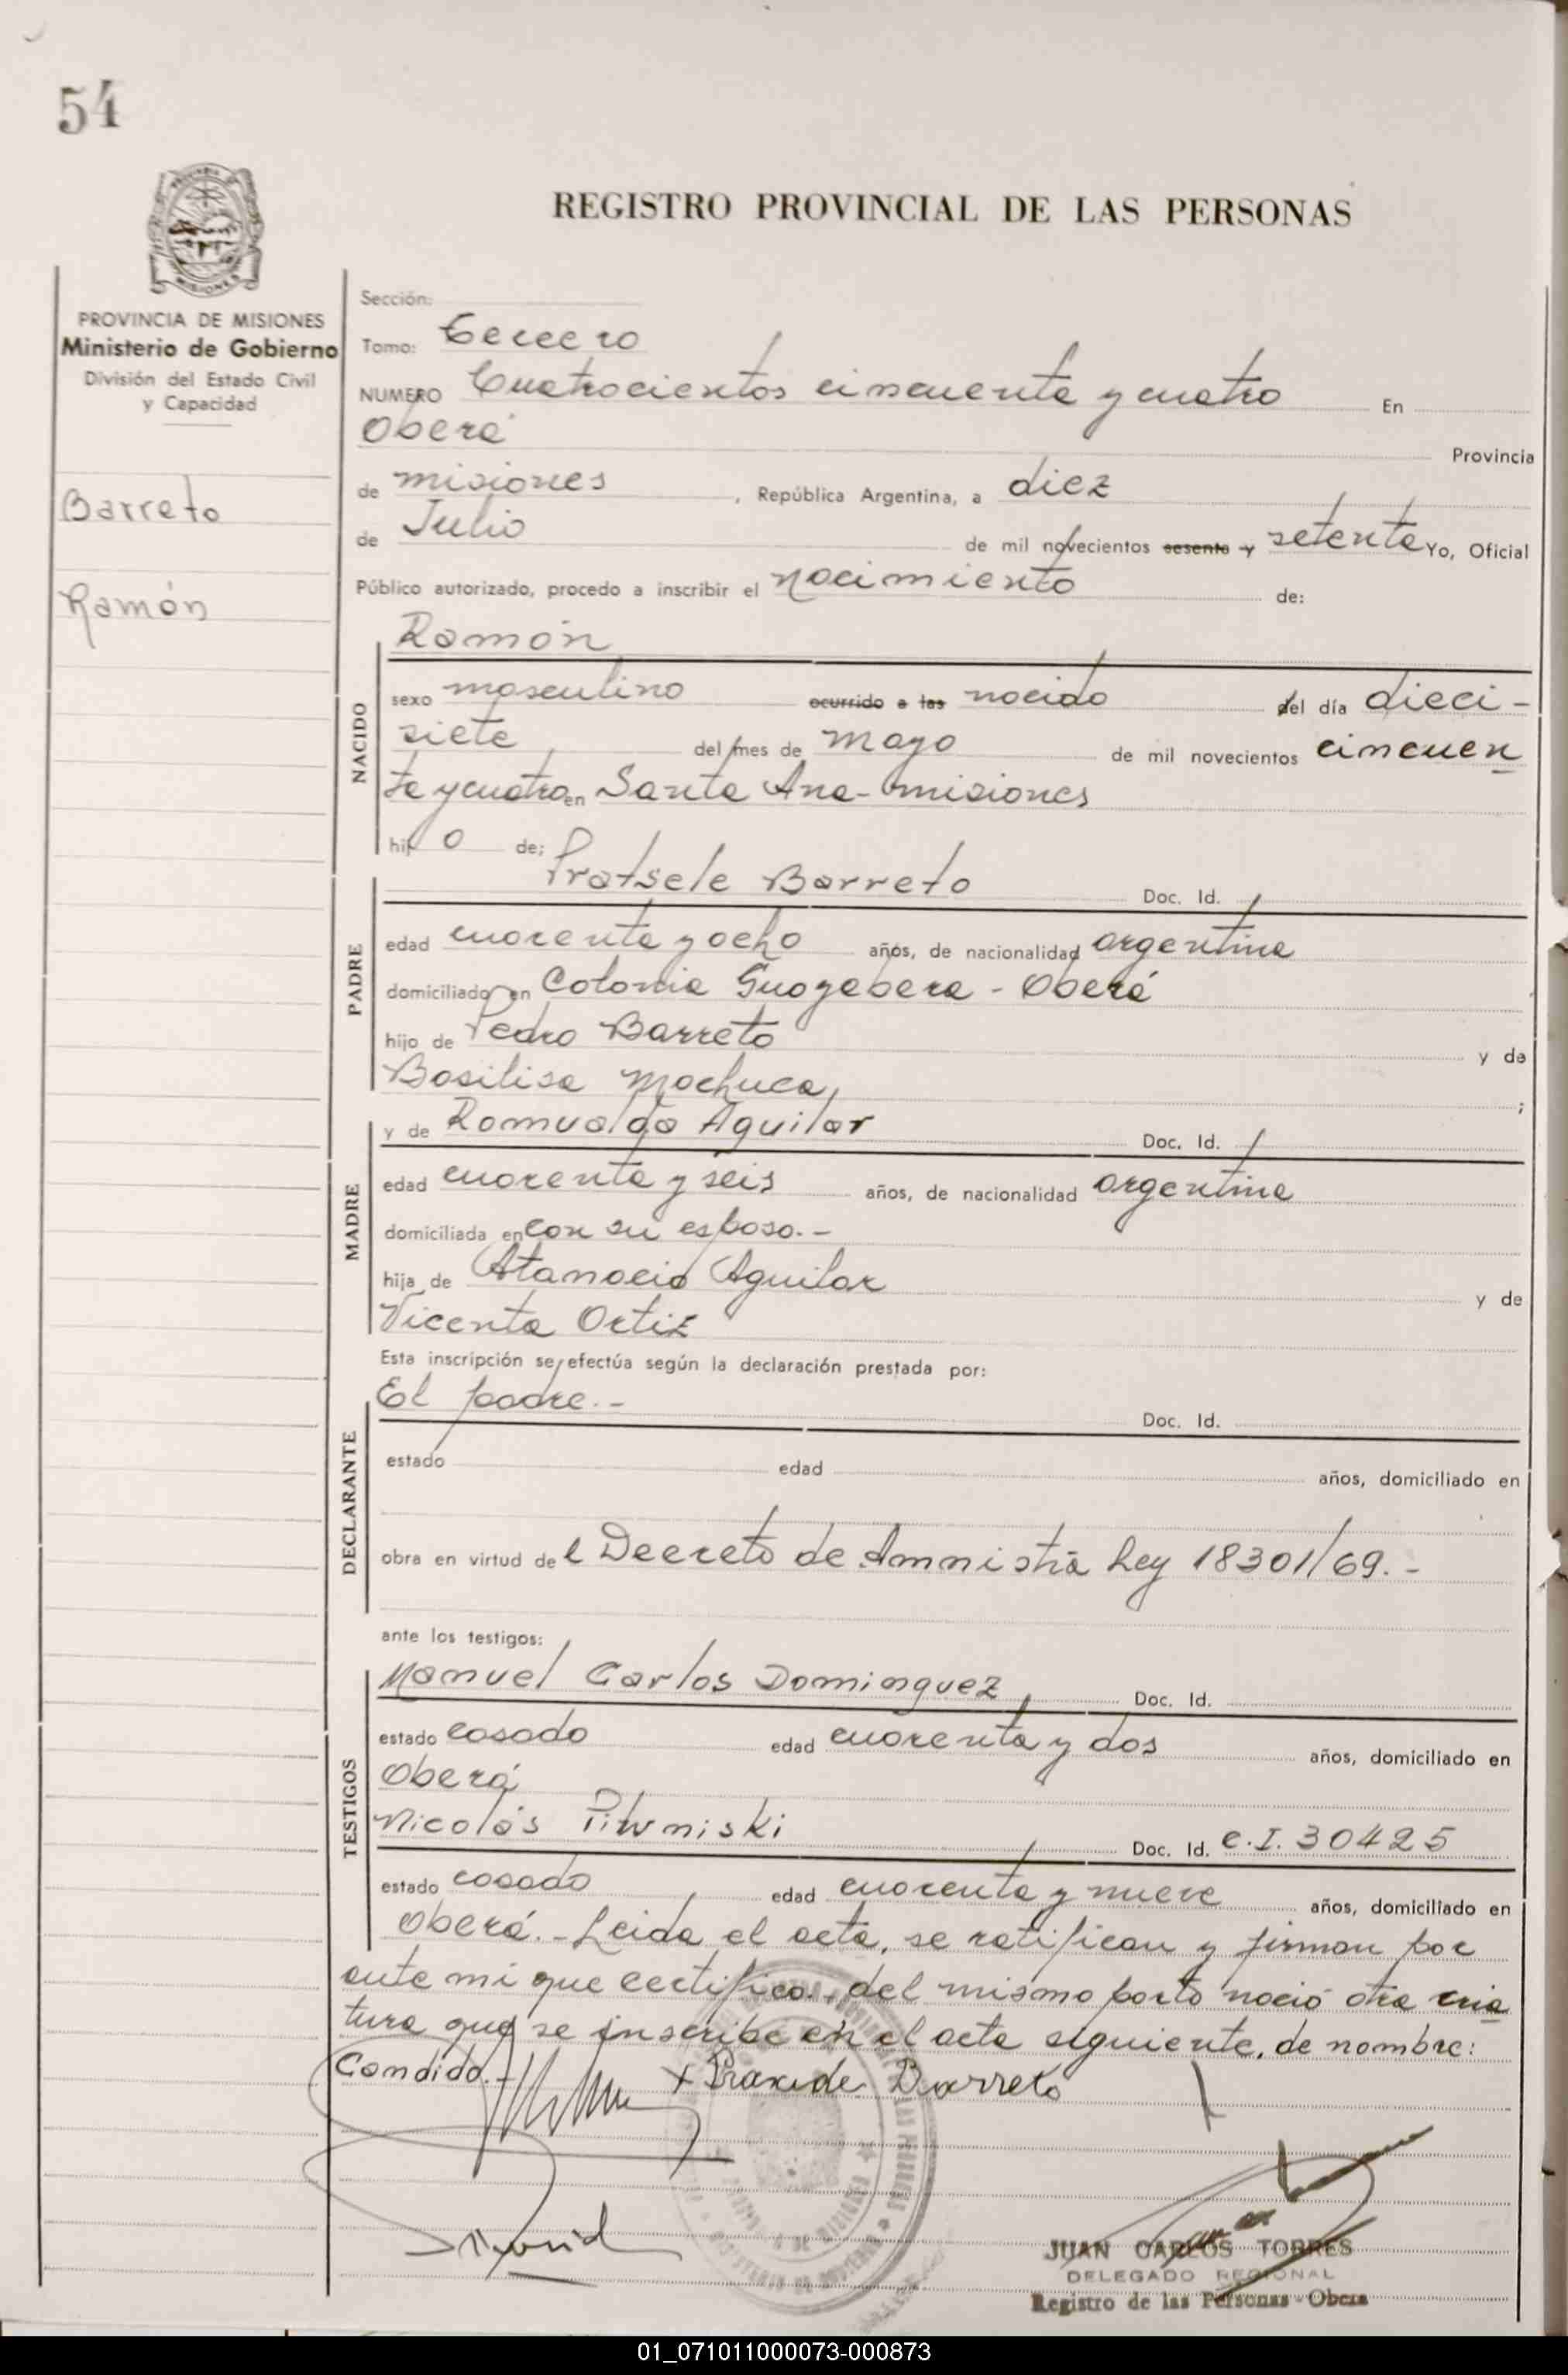 54
REGISTRO PROVINCIAL DE LAS PERSONAS
PROVINCIA DE MISIONES
Ministerio de Gobierno
División del Estado Civil
y Capacidad
Barreto
Ramón
Sección:
Tomo: Tercero
NUMERO Cuatrocientos cincuenta y cuatro En
Oberá Provincia
de misiones, República Argentina, a diez
de Julio de mil novecientos sesenta y setenta Yo, Oficial
Público autorizado, procedo a inscribir el nacimiento de:
Ramón
NACIDO
sexo masculino ocurrido a las nacido del día dieci-
siete del mes de mayo de mil novecientos cincuen
ta y cuatro en Santa Ana - misiones
hijo de;
PADRE
Barreto Doc. Id.
edad cuarenta y ocho años, de nacionalidad argentina
domiciliado en Colonia Guayabera - Oberá
hijo de Pedro Barreto y de
Basilisa Machuca ;
MADRE
y de Romualda Aguilar Doc. Id.
edad cuarenta y seis años, de nacionalidad argentina
domiciliada en con su esposo.-
hija de Atanacio Aguilar y de
Vicenta Ortiz
Esta inscripción se efectúa según la declaración prestada por:
DECLARANTE
El padre.- Doc. Id.
estado edad años, domiciliado en
obra en virtud del Decreto de Amnistía Ley 18301/69.-
ante los testigos:
TESTIGOS
Manuel Carlos Dominguez Doc. Id.
estado casado edad cuarenta y dos años, domiciliado en
Oberá
Nicolás Doc. Id. C.I. 30425
estado casado edad cuarenta y nueve años, domiciliado en
Oberá.- Leida el acta, se ratifican y firman por
ante mi que certifico.- del mismo parto nació otra cria
tura que se inscribe en el acta siguiente, de nombre:
Candido.-
Barreto
JUAN CARLOS TORRES
DELEGADO REGIONAL
Registro de las Personas - Obera
01_071011000073-000873